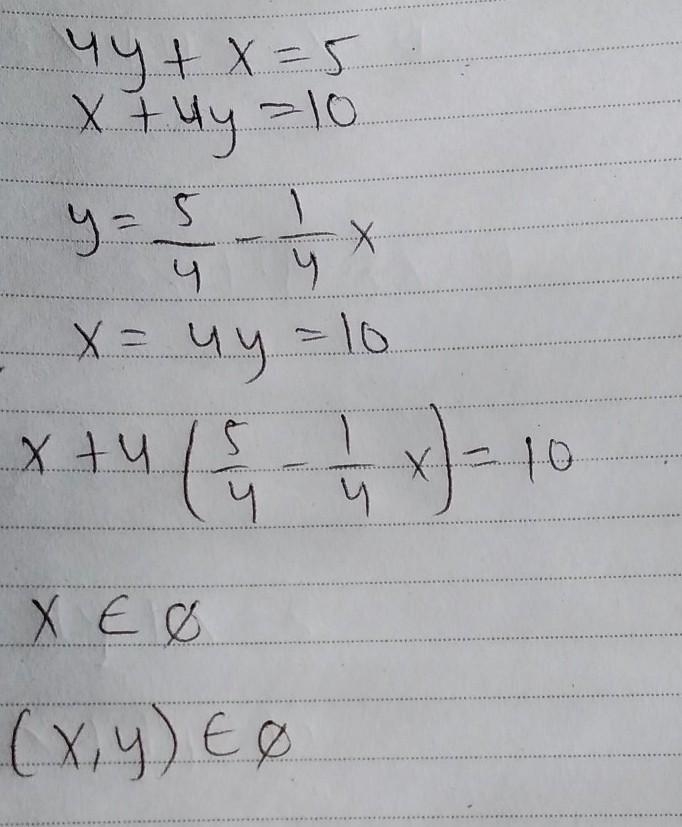 4y + x = 5
x + 4y = 10
y = 5/4 - 1/4 x
x = 4y = 10
x + 4 (5/4 - 1/4 x) = 10
x ∈ ∅
(x, y) ∈ ∅